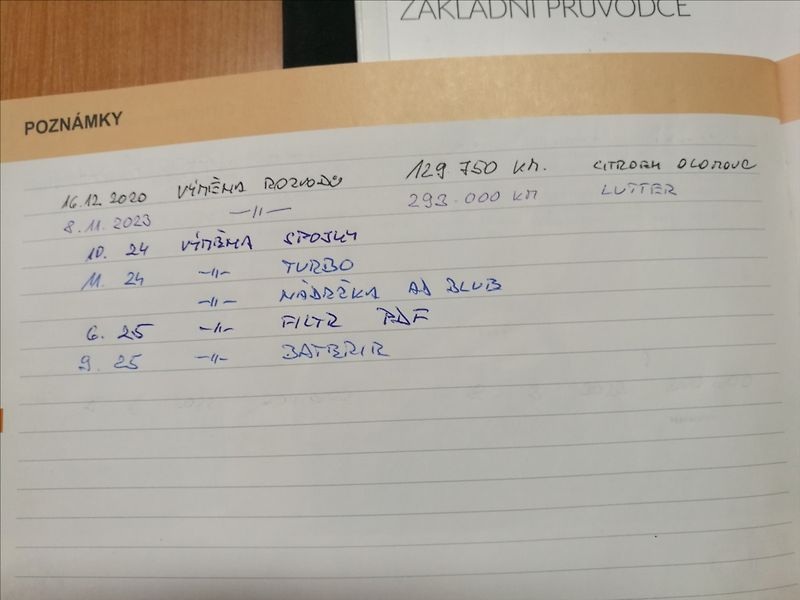 ZÁKLADNÍ PRŮVODCE
POZNÁMKY
16.12.2020 VÝMĚNA ROZVODŮ 129 750 KM. CITROEN OLOMOUC
8.11.2023 —||— 293.000 KM LUTTER
10. 24 VÝMĚNA SPOJKY
11. 24 —||— TURBO
—||— NÁDRŽKA AD BLUE
6. 25 —||— FILTR PDF
9. 25 —||— BATERIE